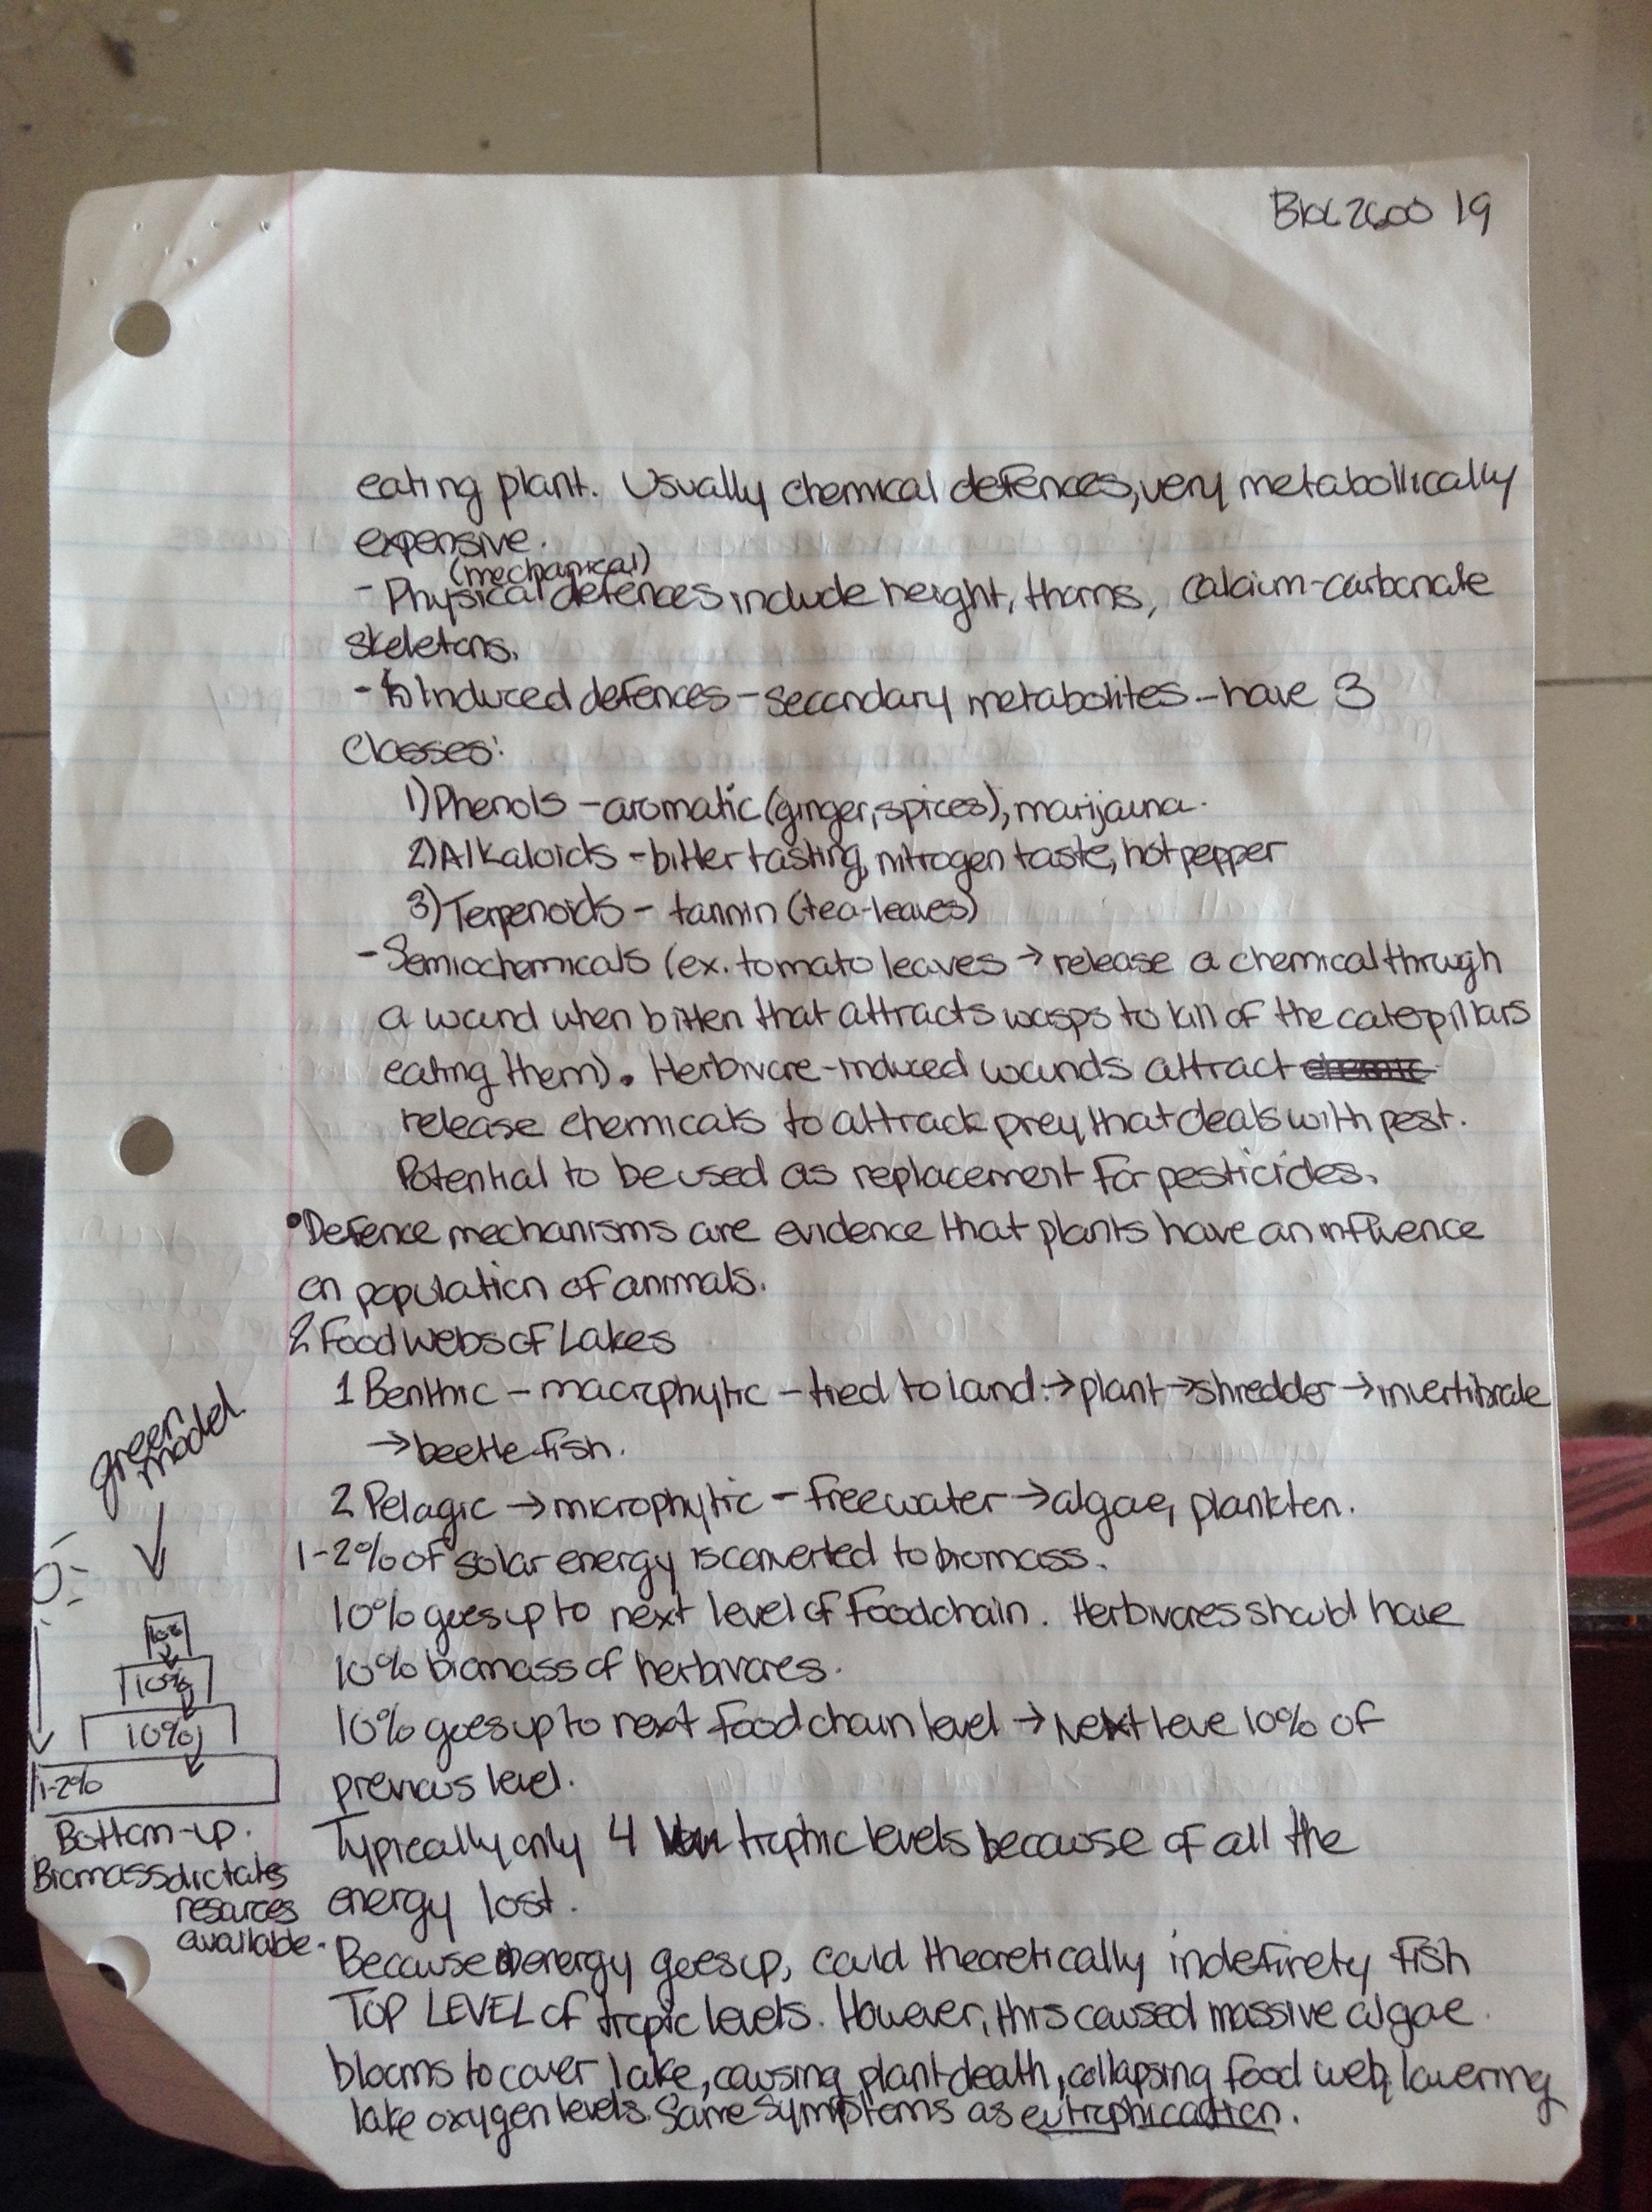 BIOL 2600 19
eating plant. Usually chemical defences, very metabollically
expensive.
(mechanical)
- Physical defences include height, thorns, calcium-carbonate
skeletons.
- Induced defences - secondary metabolites - have 3
classes:
1) Phenols - aromatic (ginger, spices), marijauna.
2) Alkaloids - bitter tasting, nitrogen taste, hot pepper
3) Terpenoids - tannin (tea-leaves)
- Semiochemicals (ex. tomato leaves → release a chemical through
a wound when bitten that attracts wasps to kill of the caterpillars
eating them). Herbivore-induced wounds attract
release chemicals to attrack prey that deals with pest.
Potential to be used as replacement for pesticides.
• Defence mechanisms are evidence that plants have an influence
on population of animals.
2 Food Webs of Lakes
1 Benthic - macrophytic - tied to land → plant → shredder → invertibrate
→ beetle fish.
2 Pelagic → microphytic - freewater → algae, plankton.
1-2% of solar energy is converted to biomass.
10% goes up to next level of foodchain. Herbivores should have
10% biomass of herbivores.
10% goes up to next food chain level → Next leve 10% of
previous level.
Typically only 4 trophic levels because of all the
energy lost.
Because energy goes up, could theoretically indefinety fish
TOP LEVEL of tropic levels. However, this caused massive algae
blooms to cover lake, causing plant death, collapsing food web, lowering
lake oxygen levels. Same symptoms as eutrophication.
green
model
10%
10%
10%
1-2%
Bottom-up.
Biomass dictates
resources
available.